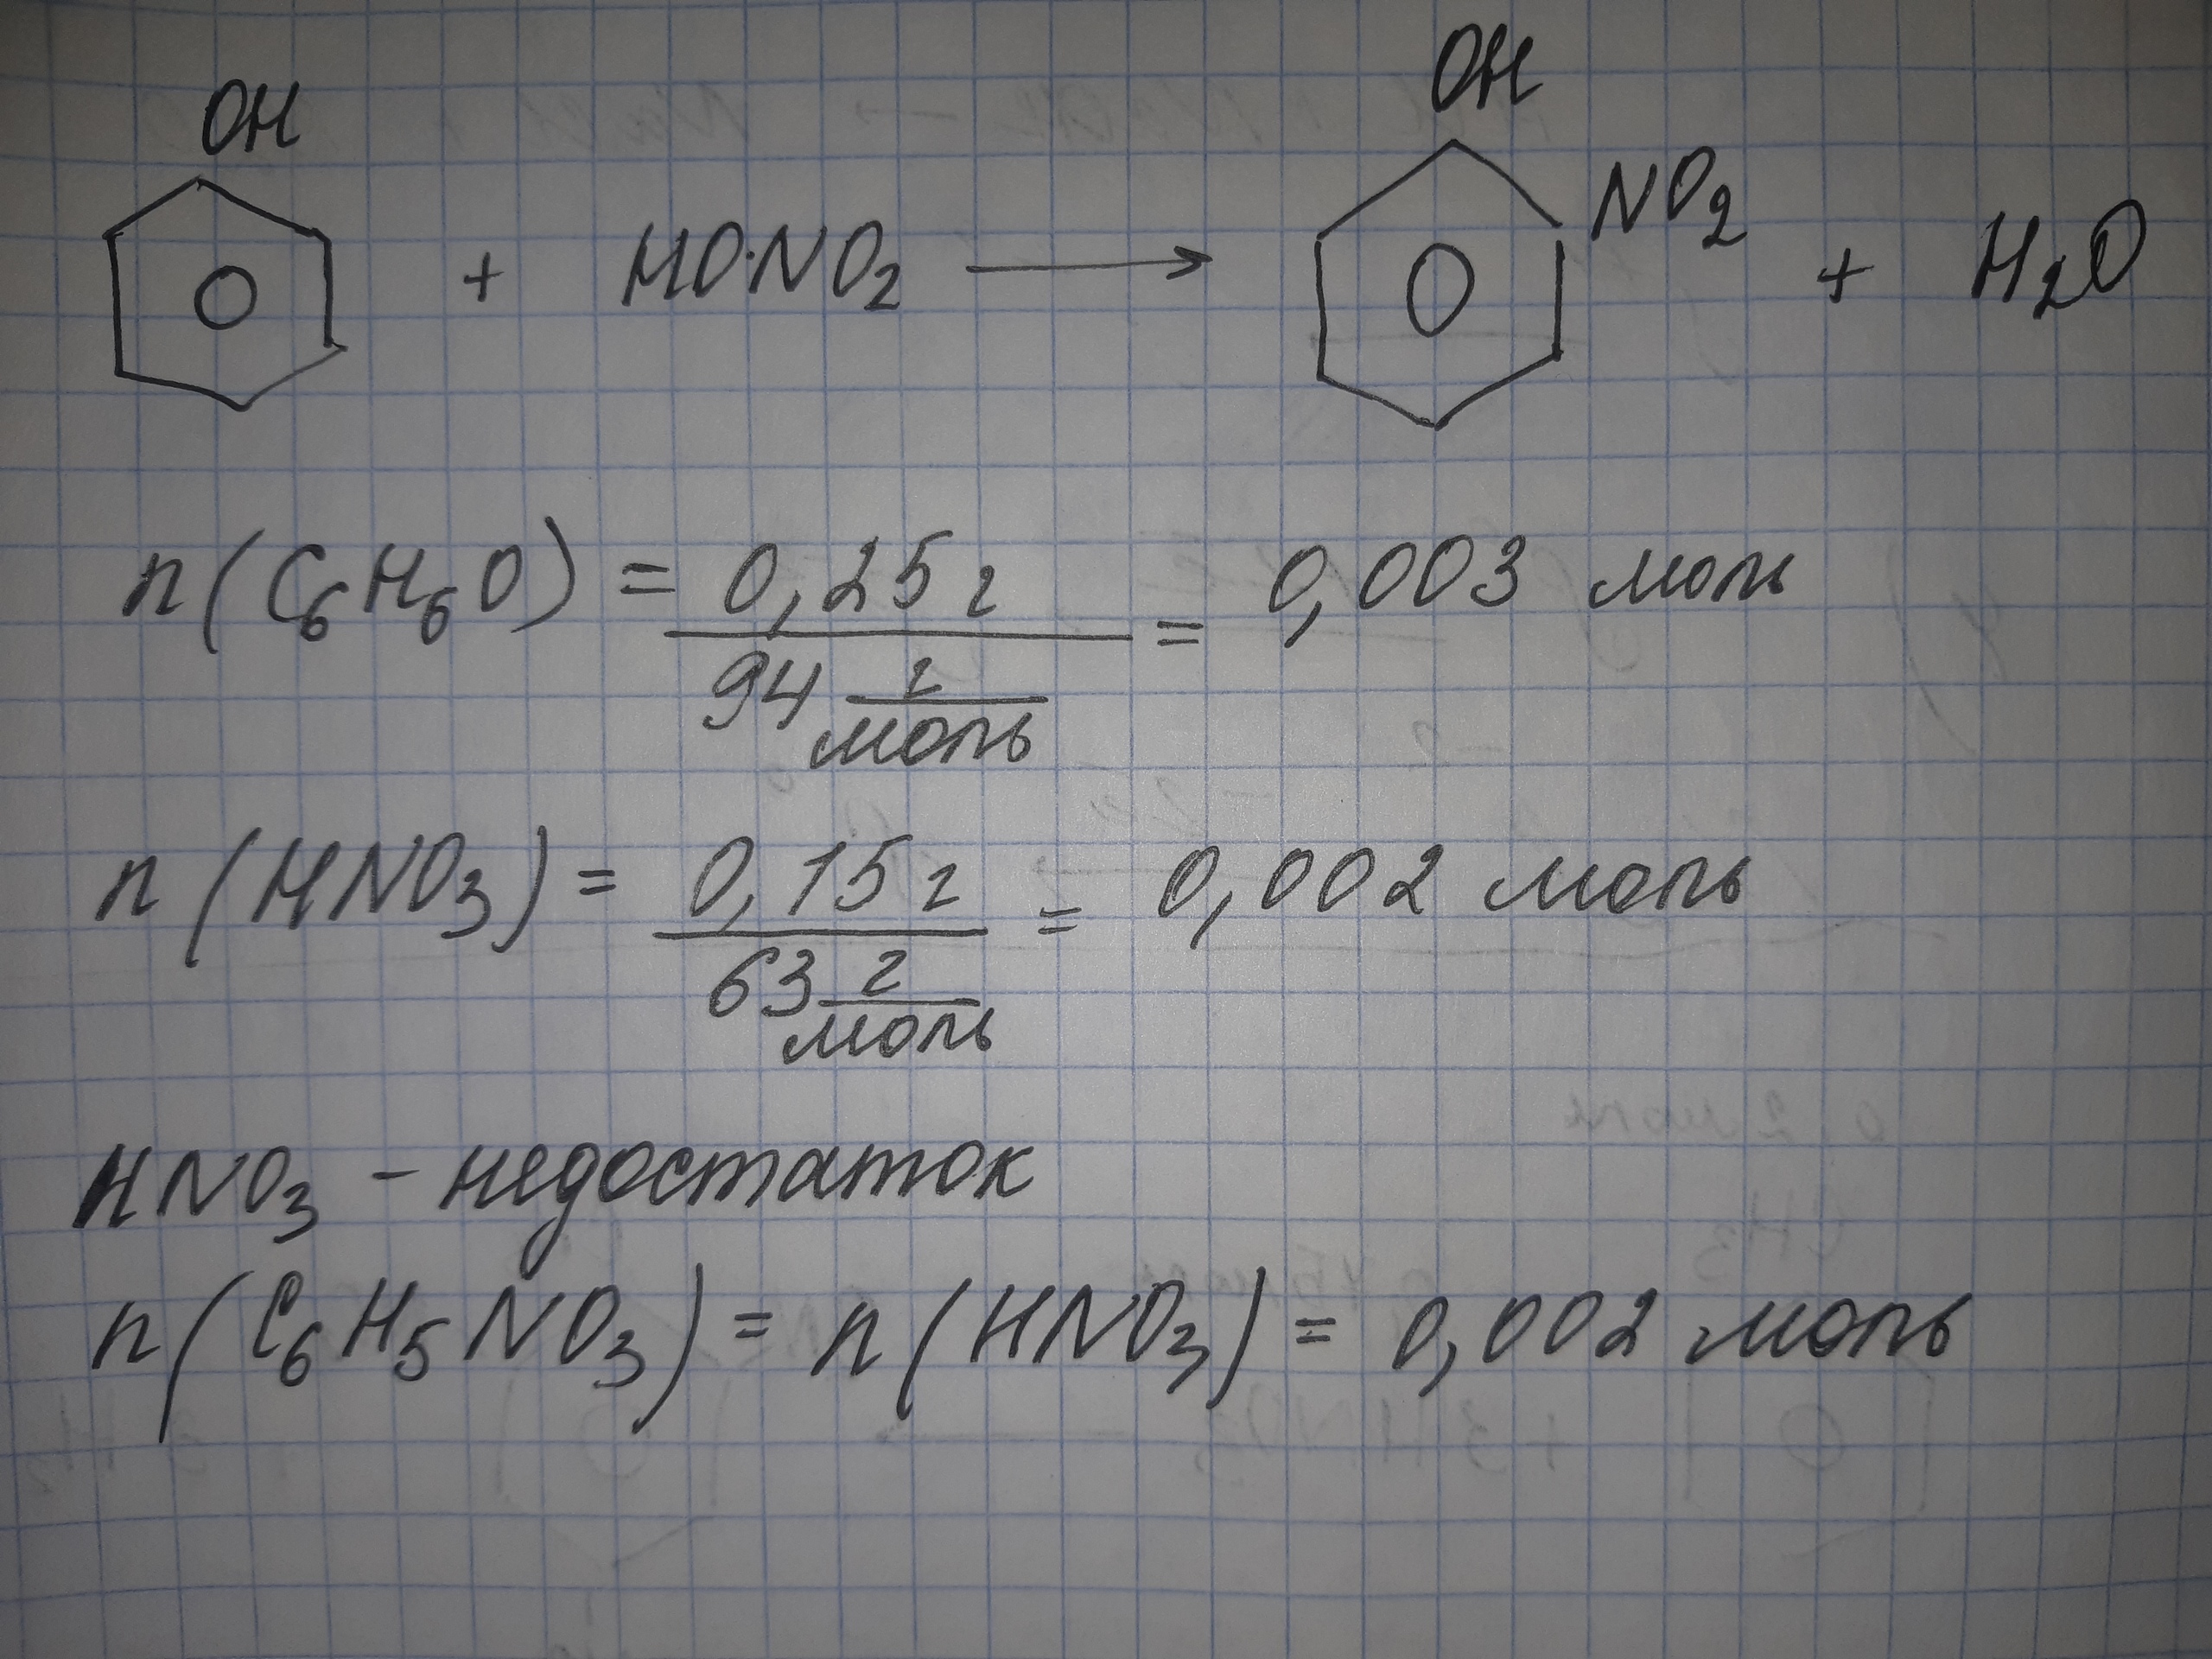 OH OH
+ HO·NO₂ → NO₂ + H₂O
n(C₆H₆O) = 0,25 г / 94 г/моль = 0,003 моль
n(HNO₃) = 0,15 г / 63 г/моль = 0,002 моль
HNO₃ - недостаток
n(C₆H₅NO₃) = n(HNO₃) = 0,002 моль